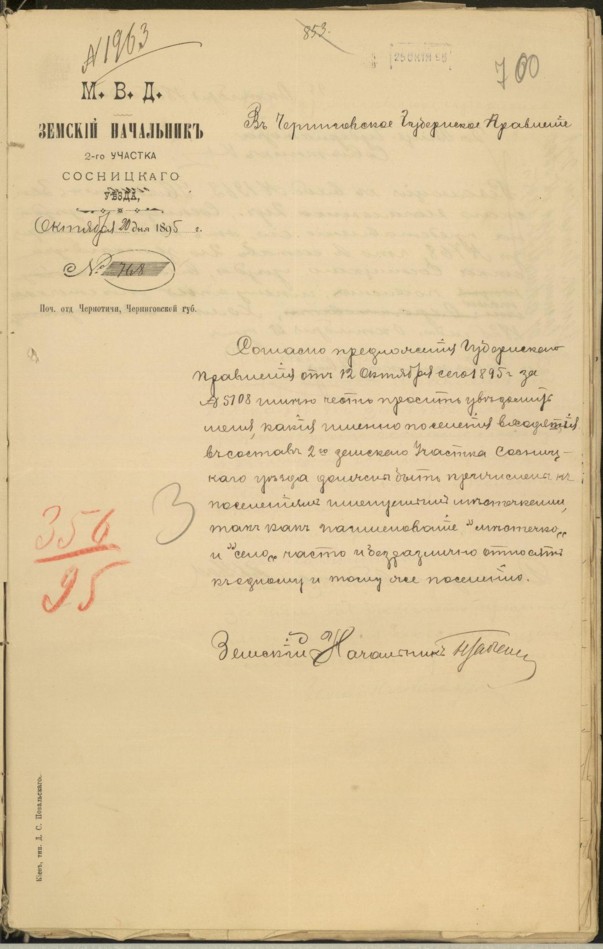 N 1963
853.
700
М. В. Д.
ЗЕМСКІЙ НАЧАЛЬНИКЪ
2-го УЧАСТКА
СОСНИЦКАГО
УѢЗДА,
Октября 20 дня 1895 г.
№ 768
Поч. отд Чернотичи, Черниговской губ.
Въ Черниговское Губернское Правленіе
Согласно предложенія Губернскаго
Правленія отъ 12 Октября сего 1895 г за
№ 5108 имѣю честь просить увѣдомить
меня, какія именно поселенія входятія
въ составъ 2го земскаго Участка Сосниц-
каго уѣзда должны быть причислены къ
поселеніямъ именуемымъ мѣстечками,
такъ какъ наименованіе "мѣстечко„
и "село„ часто и безразлично относятъ
къ одному и тому же поселенію.
3
356
95
Земскій Начальникъ
Кіевъ, тип. Д. С. Повальскаго.